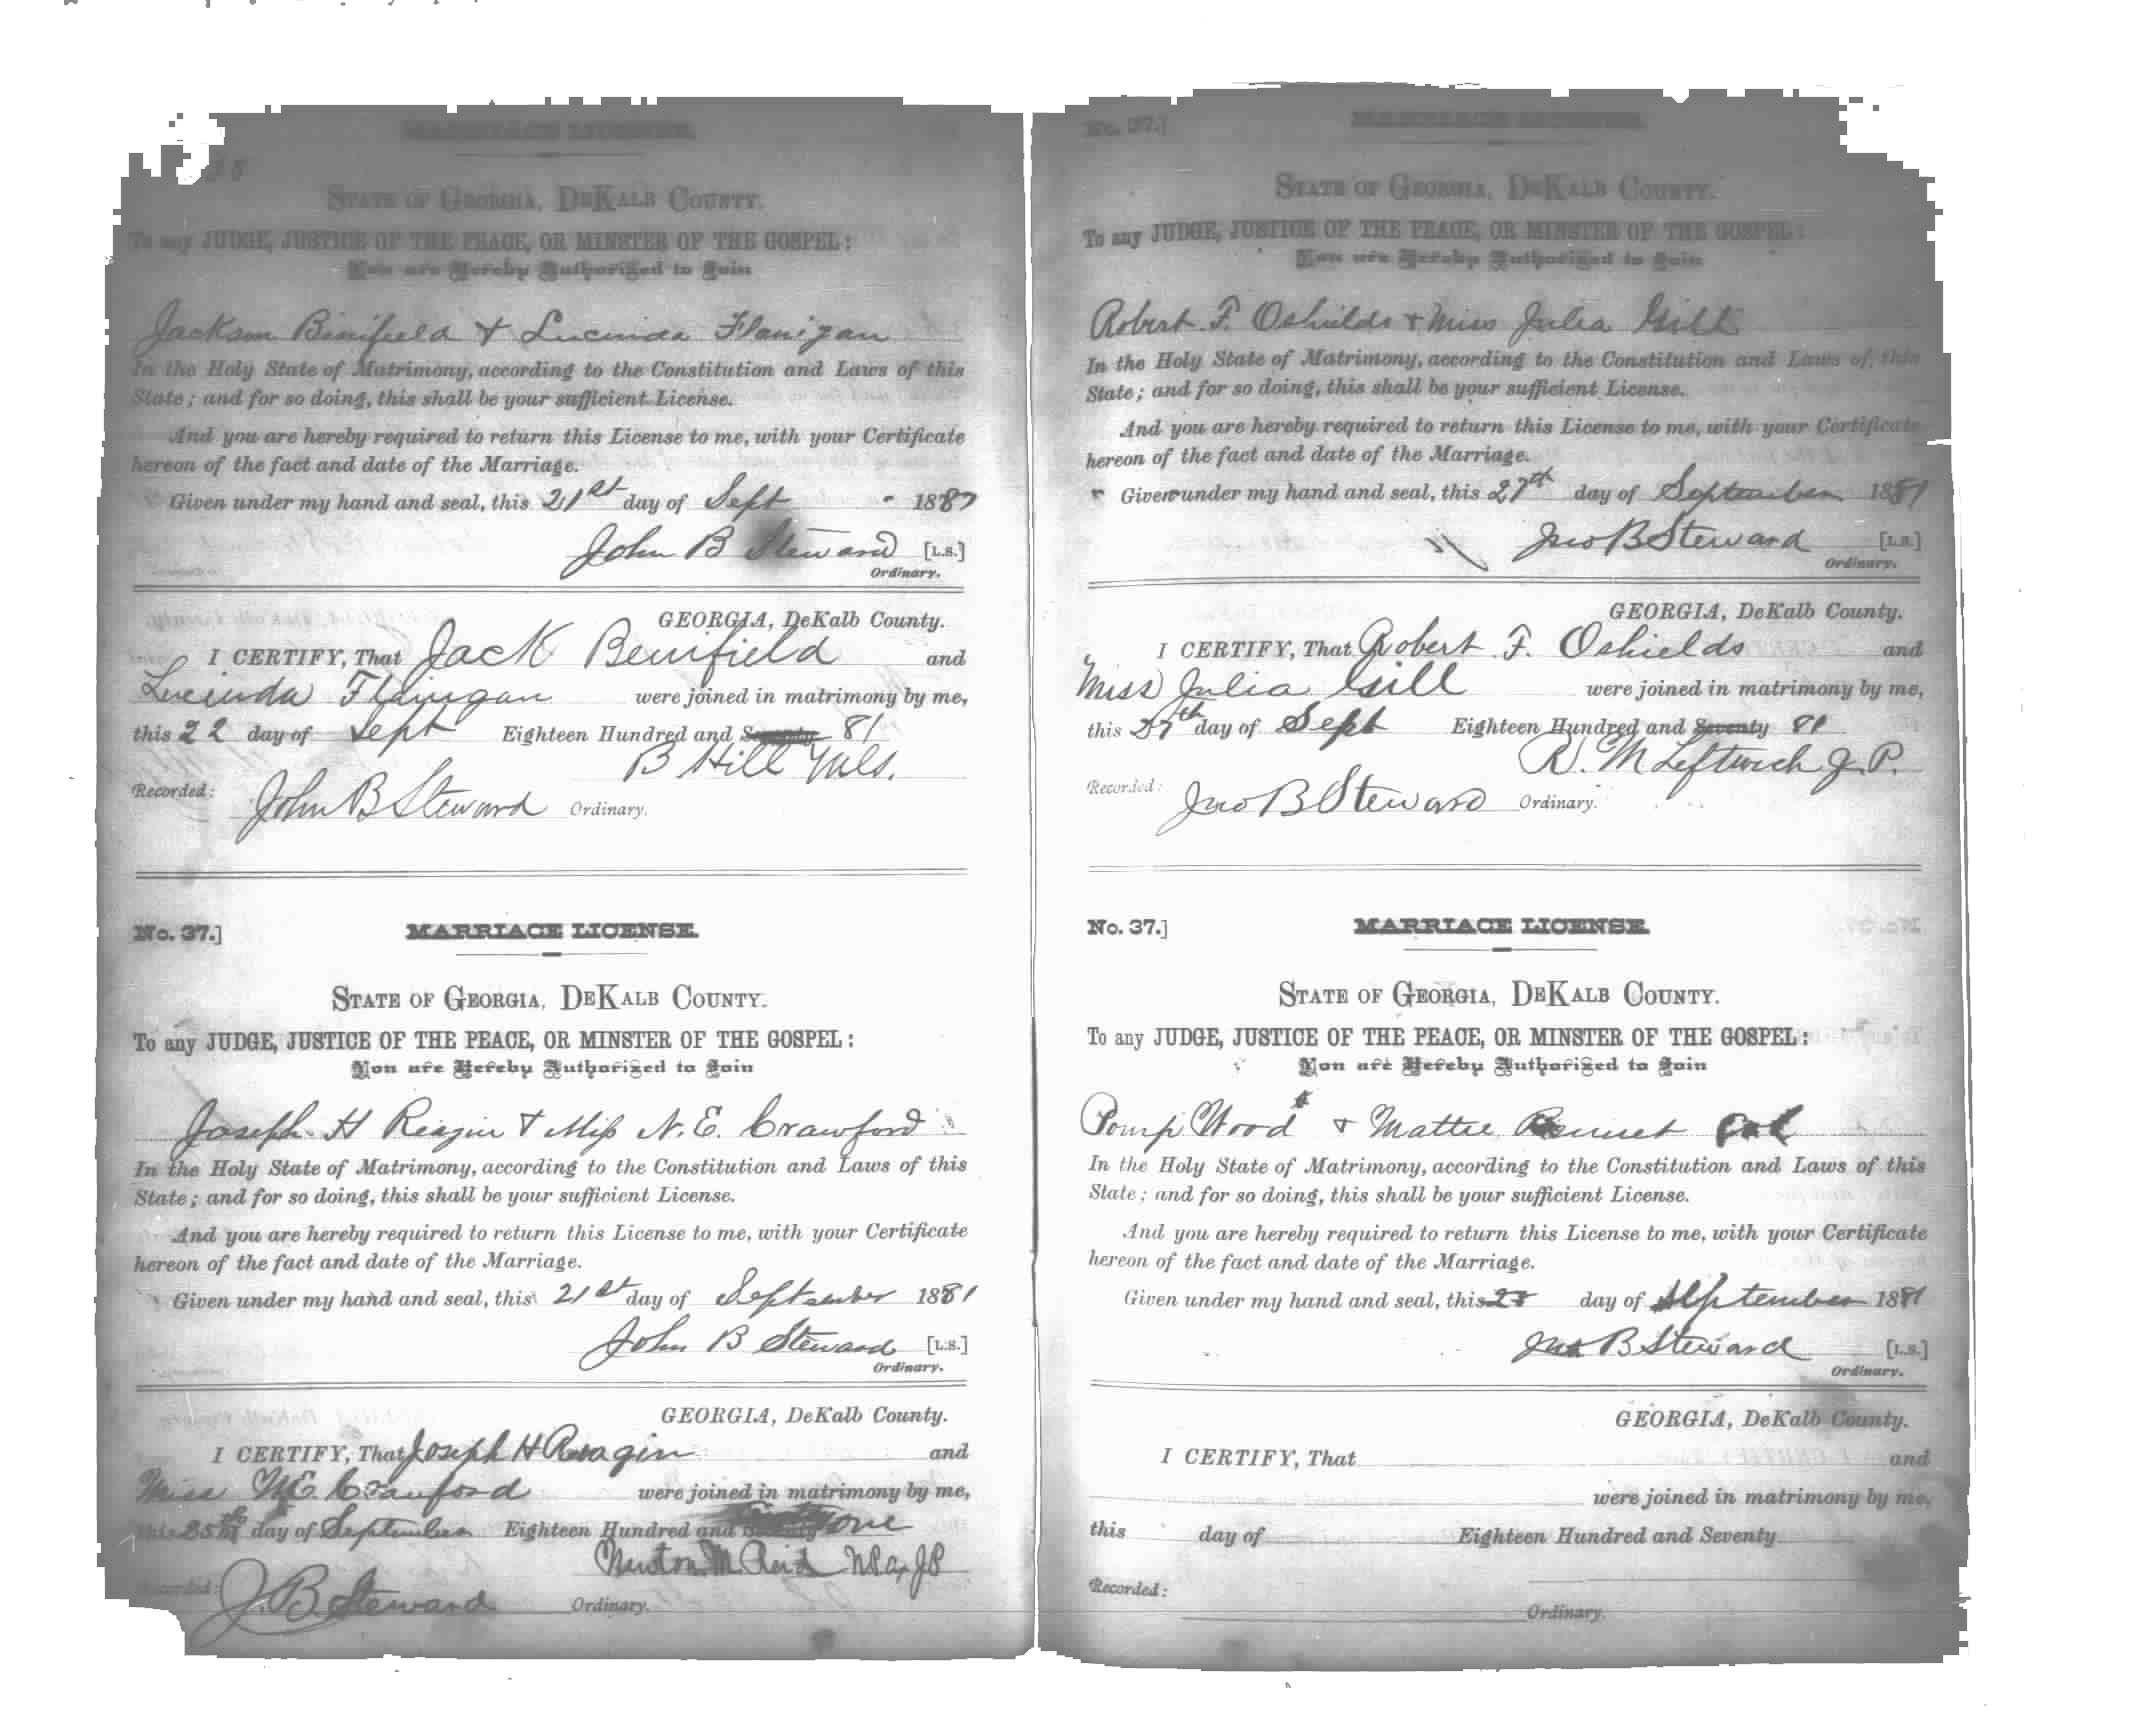 MARRIAGE LICENSE.
STATE OF GEORGIA, DEKALB COUNTY.
To any JUDGE, JUSTICE OF THE PEACE, OR MINSTER OF THE GOSPEL:
You are Hereby Authorized to Join
Jackson Benifield & Lucinda Flanigan
In the Holy State of Matrimony, according to the Constitution and Laws of this
State; and for so doing, this shall be your sufficient License.
And you are hereby required to return this License to me, with your Certificate
hereon of the fact and date of the Marriage.
Given under my hand and seal, this 21st day of Sept 1881
John B Steward [L.S.]
Ordinary.
GEORGIA, DeKalb County.
I CERTIFY, That Jack Benifield and
Lucinda Flanigan were joined in matrimony by me,
this 22 day of Sept Eighteen Hundred and Seventy 81
B Hill
Recorded: John B Steward Ordinary.
No. 37.] MARRIAGE LICENSE.
STATE OF GEORGIA, DEKALB COUNTY.
To any JUDGE, JUSTICE OF THE PEACE, OR MINSTER OF THE GOSPEL:
You are Hereby Authorized to Join
Joseph H Reagin & Miss N. E. Crawford
In the Holy State of Matrimony, according to the Constitution and Laws of this
State; and for so doing, this shall be your sufficient License.
And you are hereby required to return this License to me, with your Certificate
hereon of the fact and date of the Marriage.
Given under my hand and seal, this 21st day of September 1881
John B Steward [L.S.]
Ordinary.
GEORGIA, DeKalb County.
I CERTIFY, That Joseph H Reagin and
Miss N.E. Crawford were joined in matrimony by me,
this 25th day of September Eighteen Hundred and one
Newton M Reid N.P. & J.P.
Recorded: J. B. Steward Ordinary.
No. 37.] MARRIAGE LICENSE.
STATE OF GEORGIA, DEKALB COUNTY.
To any JUDGE, JUSTICE OF THE PEACE, OR MINSTER OF THE GOSPEL:
You are Hereby Authorized to Join
Robert F. Oshields & Miss Julia Gill
In the Holy State of Matrimony, according to the Constitution and Laws of this
State; and for so doing, this shall be your sufficient License.
And you are hereby required to return this License to me, with your Certificate
hereon of the fact and date of the Marriage.
Given under my hand and seal, this 27th day of September 1881
Jno B Steward [L.S.]
Ordinary.
GEORGIA, DeKalb County.
I CERTIFY, That Robert F. Oshields and
Miss Julia Gill were joined in matrimony by me,
this 27th day of Sept Eighteen Hundred and Seventy 81
R. M Leftwich J. P.
Recorded: Jno B Steward Ordinary.
No. 37.] MARRIAGE LICENSE.
STATE OF GEORGIA, DEKALB COUNTY.
To any JUDGE, JUSTICE OF THE PEACE, OR MINSTER OF THE GOSPEL:
You are Hereby Authorized to Join
Pomp Wood & Mattie Bennet Col
In the Holy State of Matrimony, according to the Constitution and Laws of this
State; and for so doing, this shall be your sufficient License.
And you are hereby required to return this License to me, with your Certificate
hereon of the fact and date of the Marriage.
Given under my hand and seal, this 28 day of September 1881
Jno B Steward [L.S.]
Ordinary.
GEORGIA, DeKalb County.
I CERTIFY, That and
were joined in matrimony by me,
this day of Eighteen Hundred and Seventy
Recorded:
Ordinary.